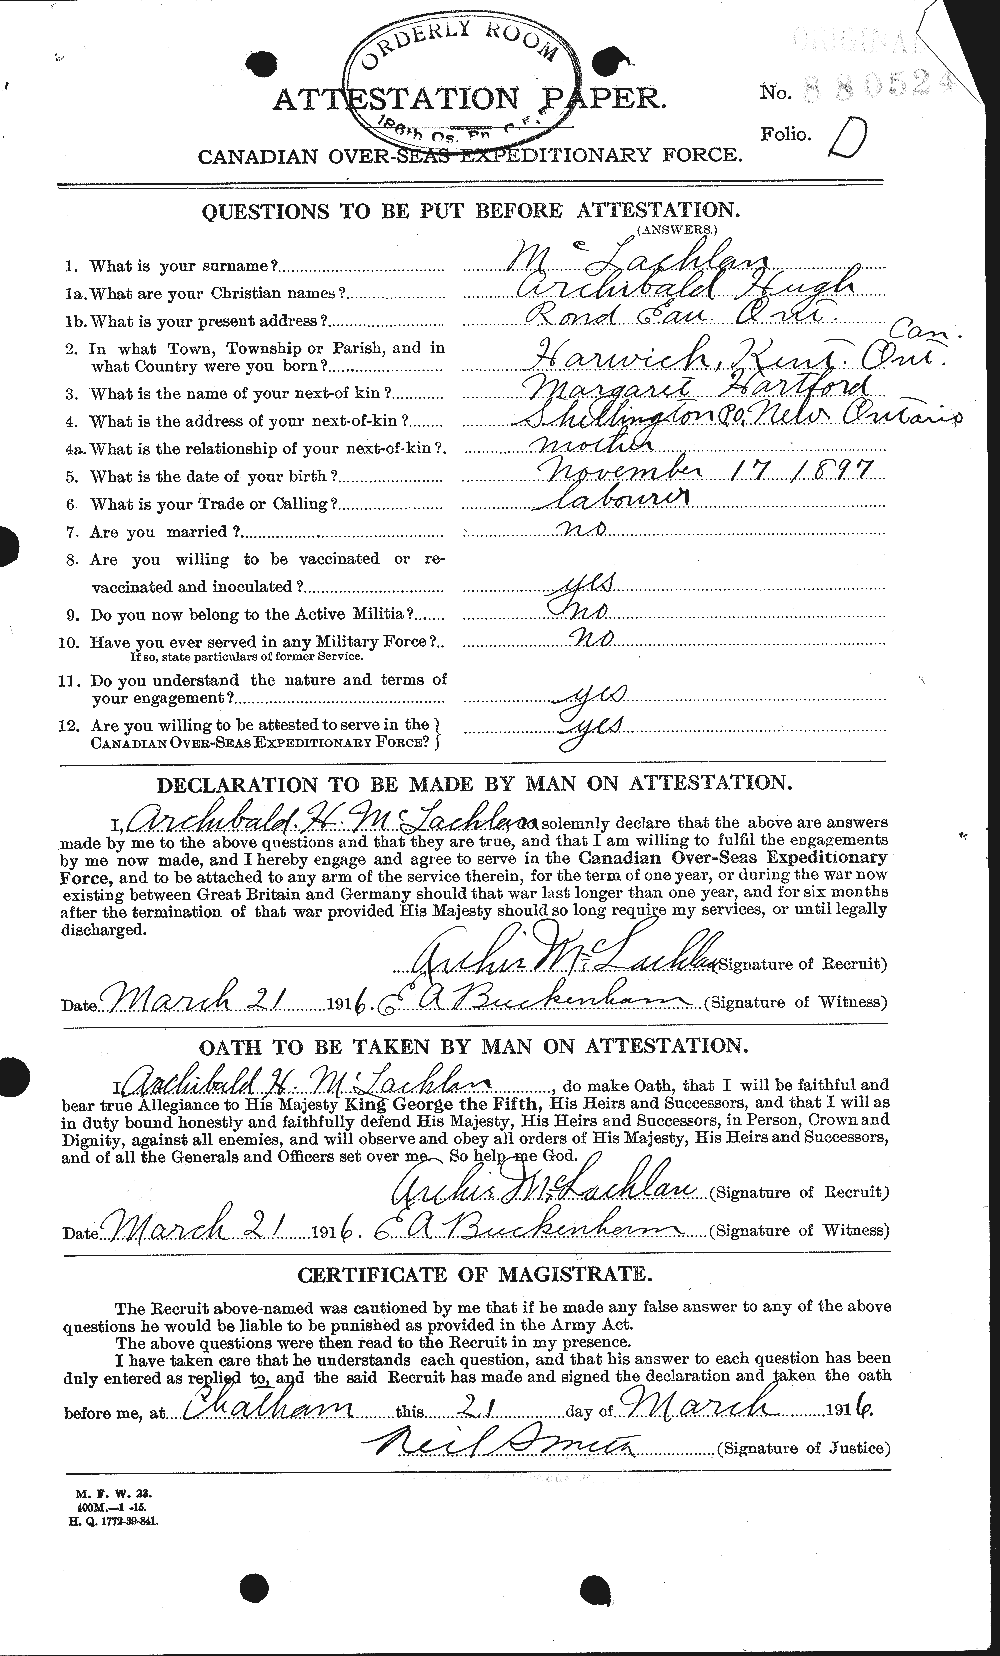 ORIGINAL
ORDERLY ROOM
186th Os. Bn. C.E.F.
No. 880524
ATTESTATION PAPER.
Folio. D
CANADIAN OVER-SEAS EXPEDITIONARY FORCE.
QUESTIONS TO BE PUT BEFORE ATTESTATION.
(ANSWERS.)
1. What is your surname? McLachlan
1a. What are your Christian names? Archibald Hugh
1b. What is your present address? Rond Eau Ont.
2. In what Town, Township or Parish, and in
what Country were you born? Harwich, Kent. Ont. Can.
3. What is the name of your next-of kin? Margaret Hartford
4. What is the address of your next-of-kin? Shillington PO, New Ontario
4a. What is the relationship of your next-of-kin? mother
5. What is the date of your birth? November 17 1897
6. What is your Trade or Calling? labourer
7. Are you married? no
8. Are you willing to be vaccinated or re-
vaccinated and inoculated? yes
9. Do you now belong to the Active Militia? no
10. Have you ever served in any Military Force? no
If so, state particulars of former Service.
11. Do you understand the nature and terms of
your engagement? yes
12. Are you willing to be attested to serve in the }
CANADIAN OVER-SEAS EXPEDITIONARY FORCE? } yes
DECLARATION TO BE MADE BY MAN ON ATTESTATION.
I, Archibald. H. McLachlan, do solemnly declare that the above are answers
made by me to the above questions and that they are true, and that I am willing to fulfil the engagements
by me now made, and I hereby engage and agree to serve in the Canadian Over-Seas Expeditionary
Force, and to be attached to any arm of the service therein, for the term of one year, or during the war now
existing between Great Britain and Germany should that war last longer than one year, and for six months
after the termination of that war provided His Majesty should so long require my services, or until legally
discharged.
Archie McLachlan (Signature of Recruit)
Date March 21 1916. E A Buckenham (Signature of Witness)
OATH TO BE TAKEN BY MAN ON ATTESTATION.
I Archibald H. McLachlan, do make Oath, that I will be faithful and
bear true Allegiance to His Majesty King George the Fifth, His Heirs and Successors, and that I will as
in duty bound honestly and faithfully defend His Majesty, His Heirs and Successors, in Person, Crown and
Dignity, against all enemies, and will observe and obey all orders of His Majesty, His Heirs and Successors,
and of all the Generals and Officers set over me. So help me God.
Archie McLachlan (Signature of Recruit)
Date March 21 1916. E A Buckenham (Signature of Witness)
CERTIFICATE OF MAGISTRATE.
The Recruit above-named was cautioned by me that if he made any false answer to any of the above
questions he would be liable to be punished as provided in the Army Act.
The above questions were then read to the Recruit in my presence.
I have taken care that he understands each question, and that his answer to each question has been
duly entered as replied to, and the said Recruit has made and signed the declaration and taken the oath
before me, at Chatham this 21 day of March 1916.
Neil Smith (Signature of Justice)
M. F. W. 23.
400M.—1-15.
H. Q. 1772-39-841.